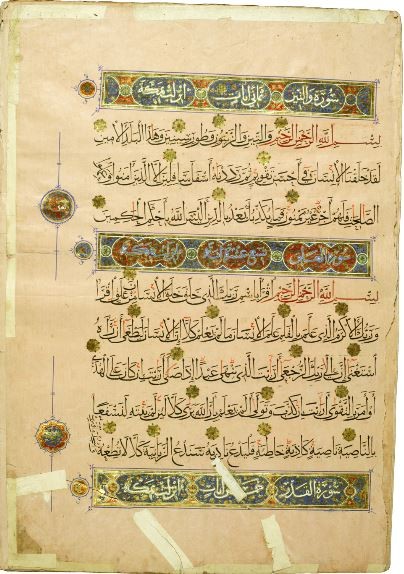 سورة والتين ثماني ايات انزلت بمكة
بسم الله الرحمن الرحيم والتين والزيتون وطور سينين وهذا البلد الامين
لقد خلقنا الانسان في احسن تقويم ثم رددناه اسفل سافلين الا الذين امنوا وعملوا
الصالحات فلهم اجر غير ممنون فما يكذبك بعد بالدين اليس الله باحكم الحكمين
سورة انزلت بمكة
بسم الله الرحمن الرحيم اقرا باسم ربك الذي خلق خلق الانسان من علق اقرا
وربك الاكرم الذي علم بالقلم علم الانسان ما لم يعلم كلا ان الانسان ليطغى ان راه
استغنى ان الى ربك الرجعى ارايت الذي ينهى عبدا اذا صلى ارايت ان كان على الهدى
او امر بالتقوى ارايت ان كذب وتولى الم يعلم بان الله يرى كلا لئن لم ينته لنسفعا
بالناصية ناصية كاذبة خاطئة فليدع ناديه سندع الزبانية كلا لا تطعه
سورة القدر خمس ايات انزلت بمكة